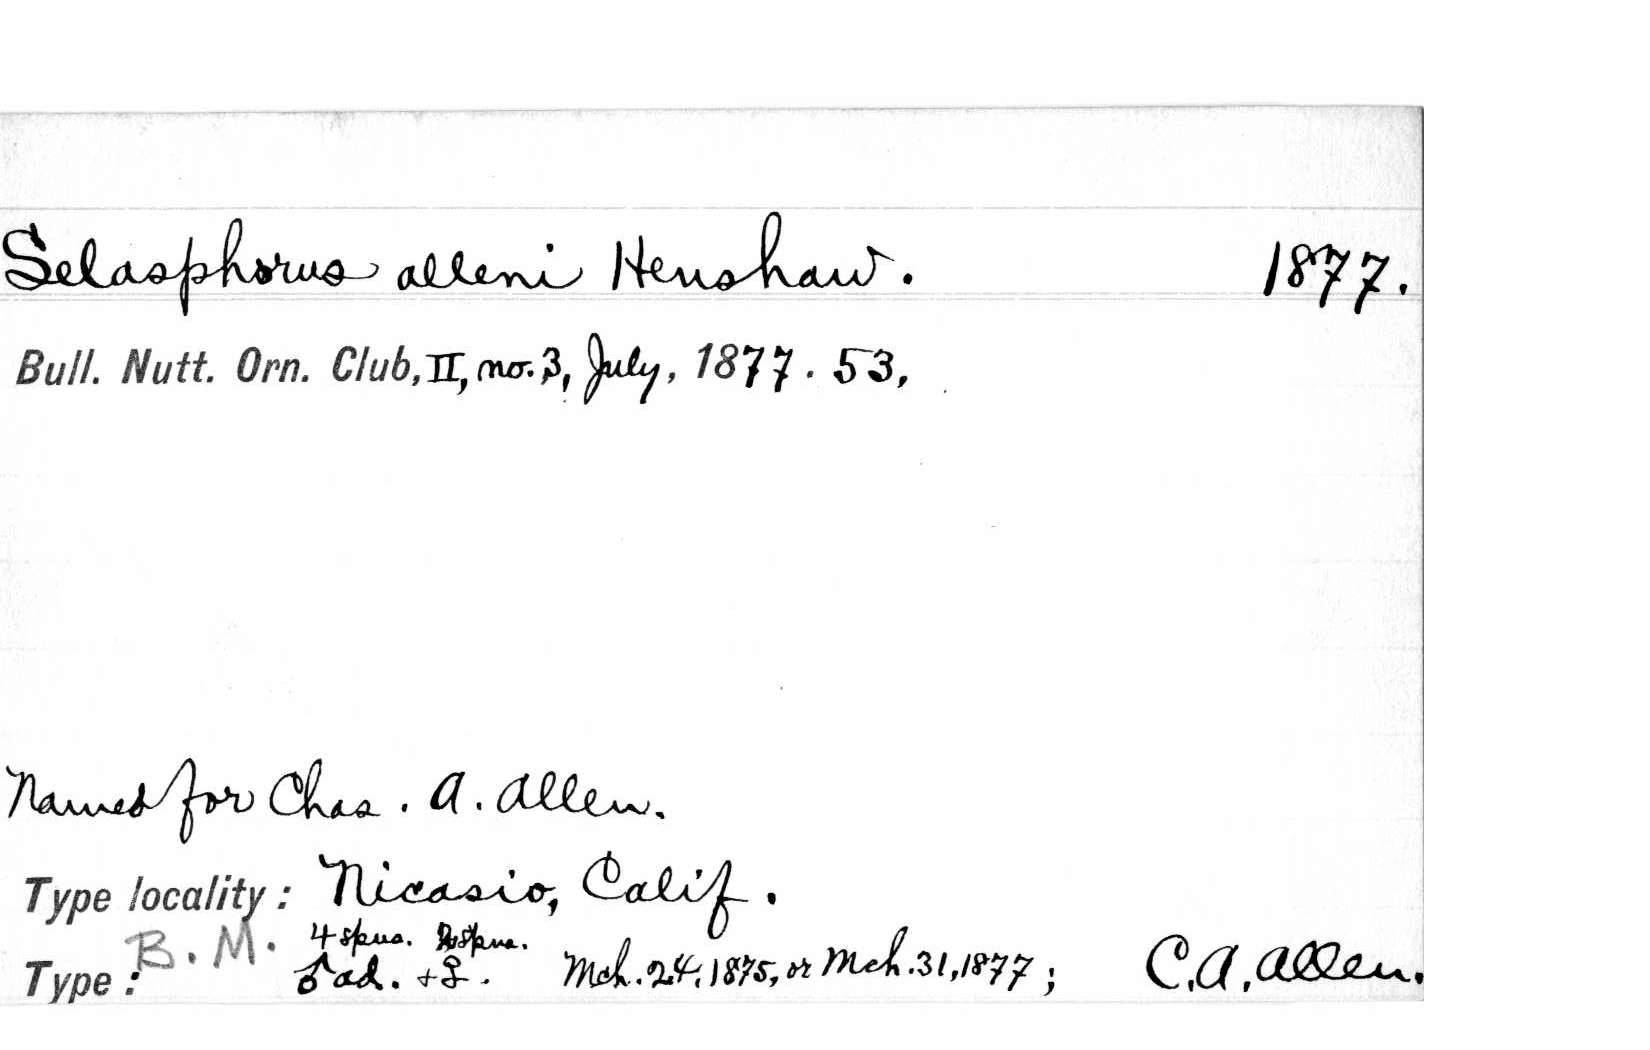 Selasphorus alleni Henshaw. 1877.
Bull. Nutt. Orn. Club, II, no. 3, July, 1877. 53,
Named for Chas. A. Allen.
Type locality: Nicasio, Calif.
B. M. 4 spns. 2 spns.
Type: ♂ ad. + ♀. Mch. 24, 1875, or Mch. 31, 1877; C. A. Allen.